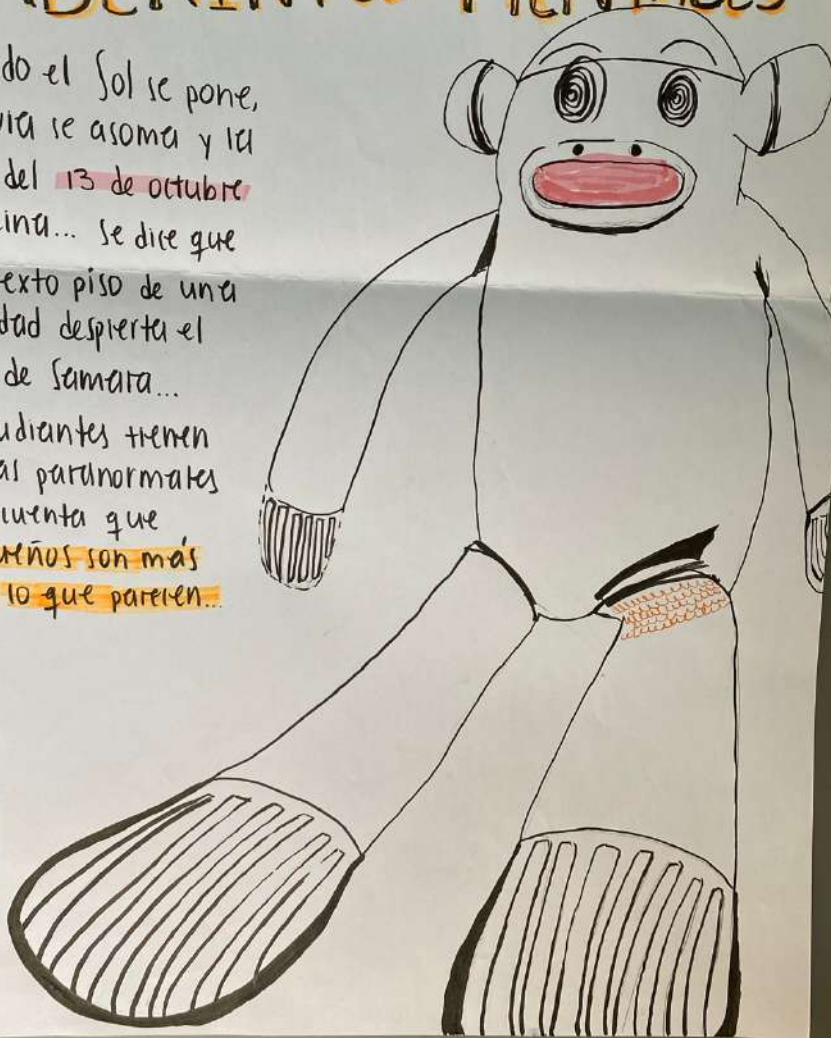 do el Sol se pone,
via se asoma y la
del 13 de octubre
ina... Se dice que
exto piso de una
dad despierta el
de Samara...
udiantes tienen
as paranormales
cuenta que
reños son más
lo que parecen...